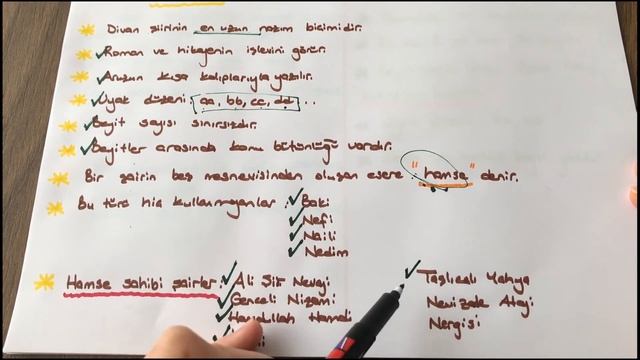 Divan şiirinin en uzun nazım biçimidir.
Roman ve hikayenin işlevini görür.
Aruzun kısa kalıplarıyla yazılır.
Uyak düzeni: aa, bb, cc, dd...
Beyit sayısı sınırsızdır.
Beyitler arasında konu bütünlüğü vardır.
Bir şairin beş mesnevisinden oluşan esere: "hamse" denir.
Bu türü hiç kullanmayanlar: Baki
Nefi
Naili
Nedim
Hamse sahibi şairler: Ali Şir Nevayi
Genceli Nizami
Hamdullah Hamdi
Taşlıcalı Yahya
Nevizade Atayi
Nergisi